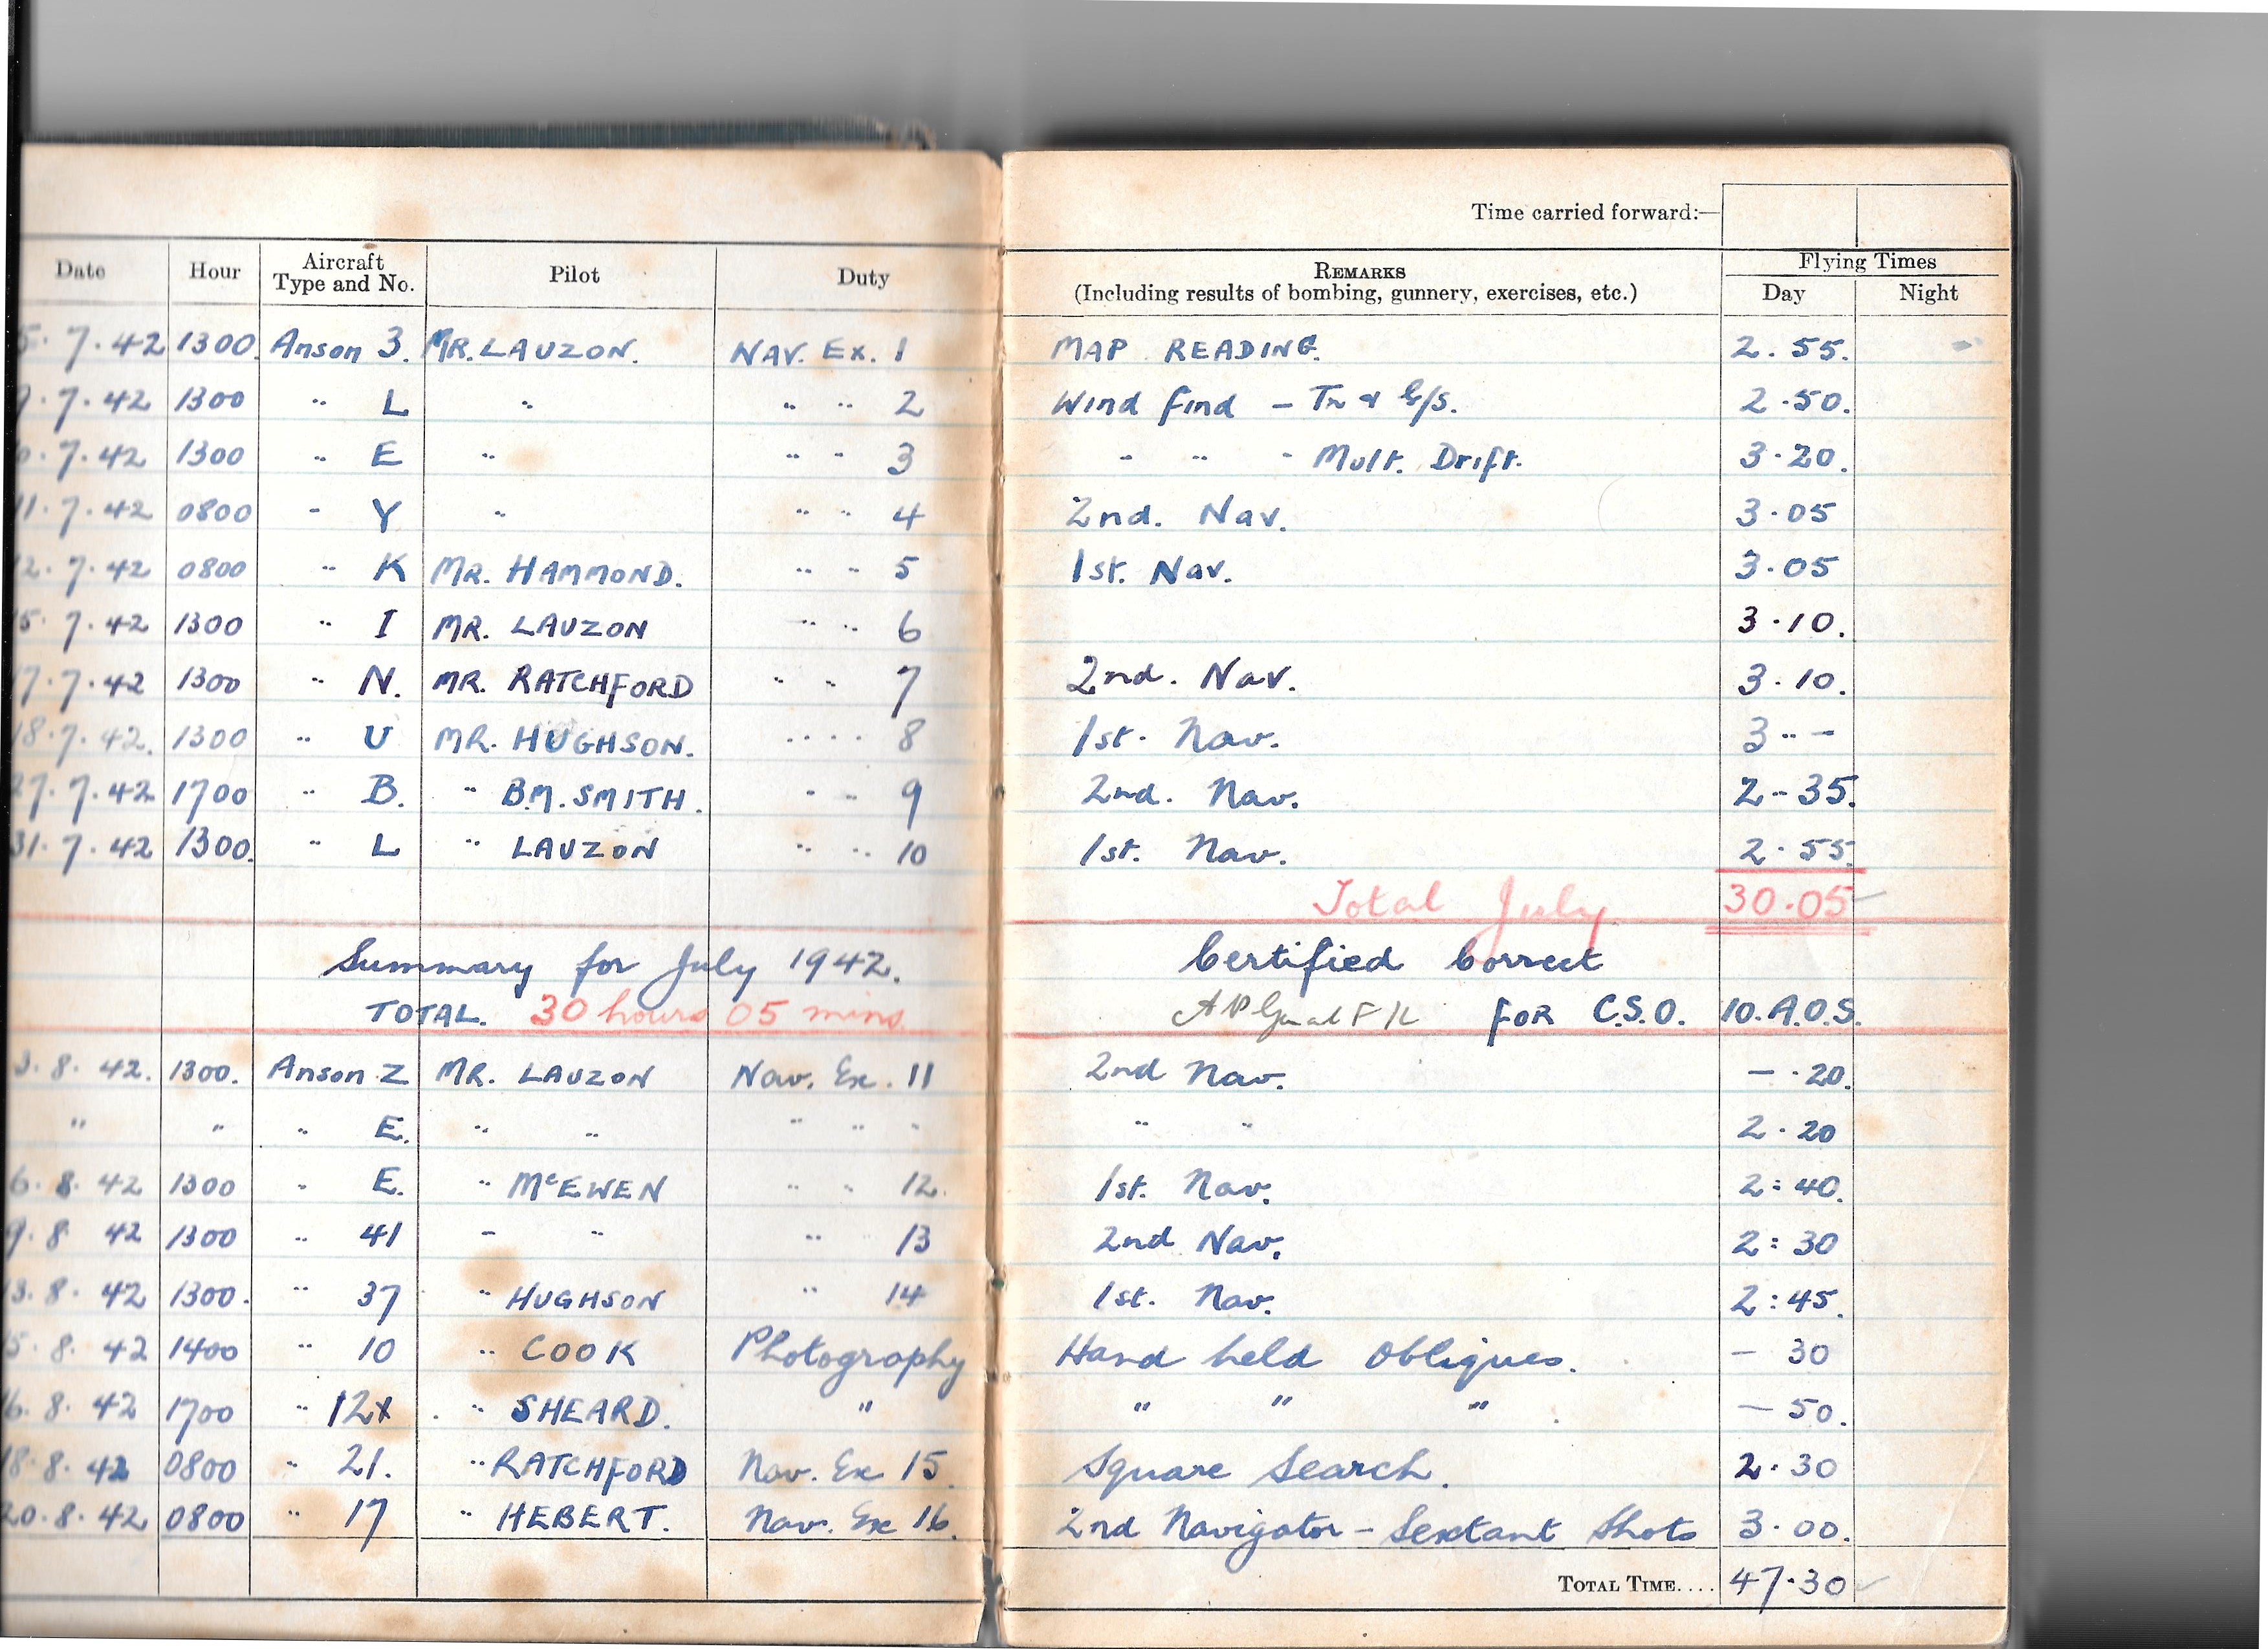 Time carried forward:—
Date Hour Aircraft Type and No. Pilot Duty REMARKS (Including results of bombing, gunnery, exercises, etc.) Flying Times Day Night
5. 7. 42 1300. Anson 3. MR. LAUZON. NAV. Ex. 1 MAP READING. 2. 55.
7. 42 1300 " L " " " 2 Wind find - Tr & G/S. 2.50.
7. 42 1300 " E " " " 3 " " " Mult. Drift. 3.20.
11. 7. 42 0800 " Y " " " 4 2nd. Nav. 3.05
12. 7. 42 0800 " K MR. HAMMOND. " " 5 1st. Nav. 3.05
15. 7. 42 1300 " I MR. LAUZON " " 6 3.10.
17. 7. 42 1300 " N. MR. RATCHFORD " " 7 2nd. Nav. 3.10.
18. 7. 42. 1300 " U MR. HUGHSON. " " 8 1st. Nav. 3 - -
27. 7. 42 1700 " B. " B.M. SMITH. " " 9 2nd. Nav. 2-35.
31. 7. 42 1300. " L " LAUZON " " 10 1st. Nav. 2.55.
Total July 30.05
Summary for July 1942. Certified Correct
TOTAL. 30 hours 05 mins FOR C.S.O. 10. A.O.S.
3. 8. 42. 1300. Anson Z MR. LAUZON Nav. Ex. 11 2nd Nav. - .20.
" " " E. " " " " " " " 2.20
6. 8. 42 1300 " E. " McEWEN " " 12. 1st. Nav. 2:40.
9. 8 42 1300 " 41 " " " 13 2nd Nav. 2:30
13. 8. 42 1300. " 37 " HUGHSON " 14 1st. Nav. 2:45.
15. 8. 42 1400 " 10 " COOK Photography Hand held Obliques. - 30
16. 8. 42 1700 " 12x " SHEARD. " " " " - 50.
18. 8. 42 0800 " 21. " RATCHFORD Nav. Ex 15. Square Search. 2.30
20. 8. 42 0800 " 17 " HEBERT. Nav. Ex 16. 2nd Navigator - Sextant Shots 3.00.
TOTAL TIME.... 47.30